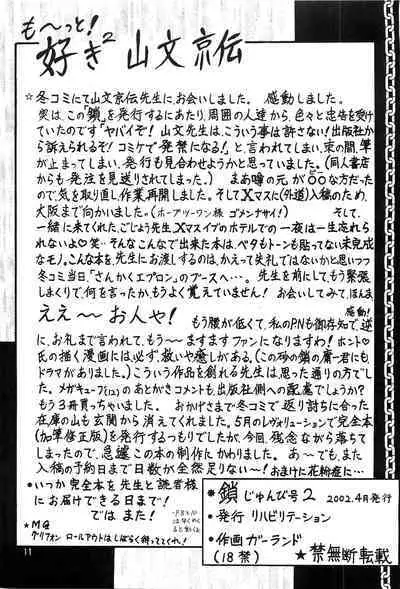 も〜っと!
好き² 山文京伝
☆冬コミにて山文京伝先生に、お会いしました。 感動しました。
実は、この「鎖」を発行するにあたり、周囲の人達から、色々と忠告を受け
ていたのです「ヤバイぞ! 山文先生は、こういう事は許さない! 出版社か
ら訴えられるぞ! コミケで発禁になる!」と言われてしまい、束の間、筆
が止まってしまい、発行も見合わせようかと思っていました。(同人書店
からも発注を見送りされてしまった。) まあ噂の元が〇〇な方だった
ので、気を取り直し、作業再開しました。そしてXマスに(外道)入稿のため、
大阪まで向かいました。(ホープツーワン様 ゴメンナサイ!) そして、
一緒に来てくれた、ごじょう先生、Xマスイブのホテルでの一夜は一生忘れ
られないよ♡笑… そんなこんなで出来た本は、ベタもトーンも貼ってない未完成
なモノ。こんな本を、先生にお渡しするのは、かえって失礼ではないかと思いつつ
冬コミ当日「さんかくエプロン」のブースへ…。先生を前にして、もう緊張
しまくりで、何を言ったか、もうよく覚えていません! お会いしてみて、ほんま、
ええ〜お人や! 感動!
もう腰が低くて、私のPNも御存知で、逆
に、お礼まで言われて、もう〜ますますファンになりますわ! ホント♡
氏の描く漫画には必ず、救いや癒しがある。(この砂の鎖の庸一君にも
ドラマがありました。) こういう作品を創れる先生は思った通りの方でし
た。メガキューブのあとがきコメントも、出版社側への配慮でしょうか?
もう3冊買っちゃいました。 おかげさまで冬コミで返り討ちに合った
在庫の山も玄関から消えてくれました。5月のレヴォリューションで完全本
(加筆修正版)を発行するつもりでしたが、今回、残念ながら落ち
てしまったので、急遽この本の制作とかわりました。 あと、また
入稿の予約日まで日数が全然足りない〜! おまけに花粉症に…
●いつか完全本を先生と読者様
にお届けできる日まで!
では また!
★MG
グリフォン ロールアウトはしばらく待っててくれ!
●鎖 じゅんび号2 2002.4月発行
●発行 リハビリテーション
●作画 ガーランド
(18禁) ★禁無断転載
11